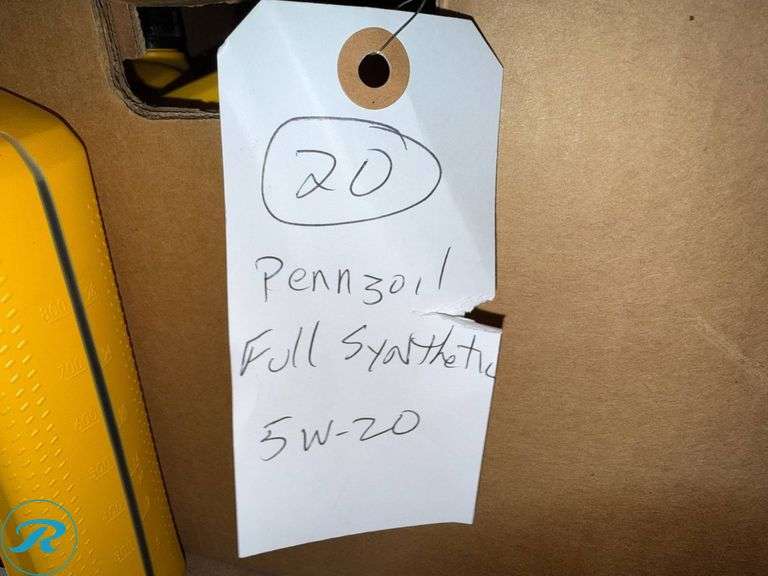 20
Pennzoil
Full Synthetic
5W-20
R